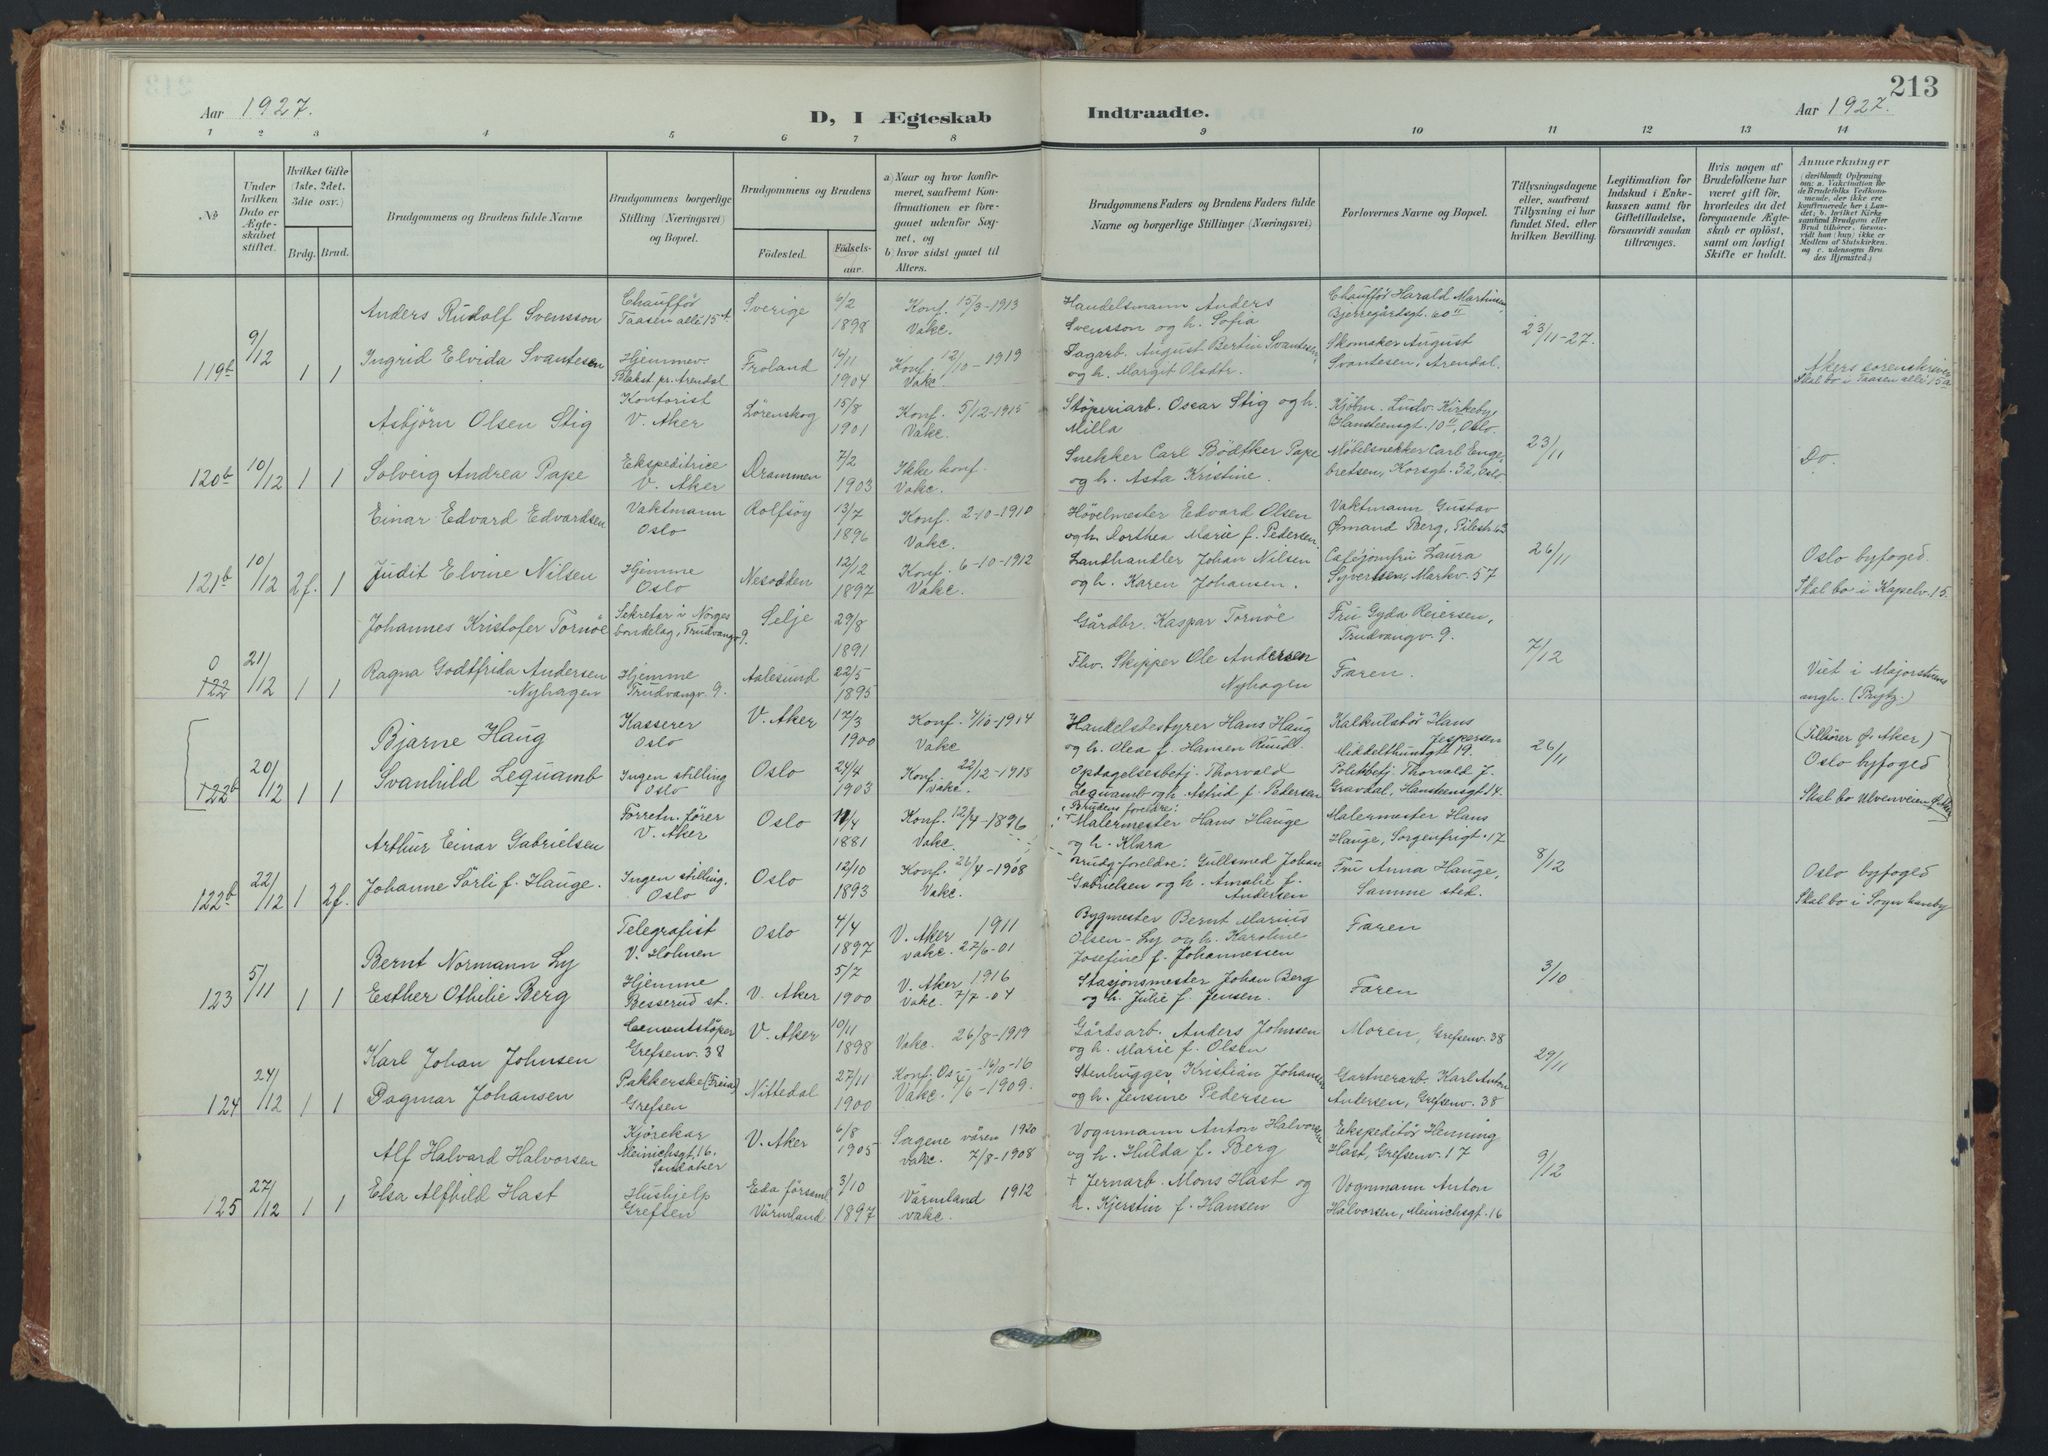 213
Aar 1927.
D, I Ægteskab Indtraadte.
Aar 1927.
1 2 3 4 5 6 7 8 9 10 11 12 13 14
No
Under hvilken Dato er Ægteskabet stiftet.
Hvilket Gifte (1ste, 2det, 3die osv.)
Brdg. Brud.
Brudgommens og Brudens fulde Navne
Brudgommens borgerlige Stilling (Næringsvei) og Bopæl.
Brudgommens og Brudens
Födested. Födselsaar.
a) Naar og hvor konfirmeret, saafremt Konfirmationen er foregaaet udenfor Sognet, og
b) hvor sidst gaaet til Alters.
Brudgommens Faders og Brudens Faders fulde Navne og borgerlige Stillinger (Næringsvei)
Forlovernes Navne og Bopæl.
Tillysningsdagene eller, saafremt Tillysning ei har fundet Sted, efter hvilken Bevilling.
Legitimation for Indskud i Enkekassen samt for Giftetilladelse, forsaavidt saadan tiltrænges.
Hvis nogen af Brudefolkene har været gift før, hvorledes da det foregaaende Ægteskab er oplöst, samt om lovligt Skifte er holdt.
Anmærkninger (deriblandt Oplysning om: a. Vakcination for de Brudefolks Vedkommende, der ikke ere konfirmerede her i Landet; b. hvilket Kirkesamfund Brudgom eller Brud tilhører, forsaavidt han (hun) ikke er Medlem af Statskirken, og c. udensogns Brudes Hjemsted.)
Anders Rudolf Svensson Chauffør Taasen allé 15 A. Sverige 6/2 1898 Konf. 15/3-1913 Vakc. Handelsmann Anders Svensson og h. Sofia Chauffør Harald Martinsen, Bjerregårdsgt. 60 II
119b 9/12 1 1 Ingrid Elvida Svantesen Hjemmev. Blakst. pr. Arendal Froland 16/11 1904 Konf. 12/10-1919 Vakc. Dagarb. August Bertin Svantesen, og h. Margit Olsdtr. Skomaker August Svantesen, Arendal. 23/11-27. Akers sorenskriver Skal bo i Taasen allé 15 a
Asbjörn Olsen Stig Kontorist V. Aker Lörenskog 15/8 1901 Konf. 5/12-1915 Vakc. Stöperiarb. Oscar Stig og h. Milla Kjöbm. Ludv. Kirkeby, Hansteensgt. 10 II, Oslo.
120b 10/12 1 1 Solveig Andrea Pape Ekspeditrice V. Aker Drammen 7/2 1903 Ikke konf. Vakc. Snekker Carl Bödtker Pape og h. Asta Kristine. Möbelsnekker Carl Engebretsen, Korsgt. 32, Oslo. 23/11 Do.
Einar Edvard Edvardsen Vaktmann Oslo Rolfsöy 13/7 1896 Konf. 2-10-1910 Vakc. Hövelmester Edvard Olsen og h. Dorthea Marie f. Pedersen. Vaktmann Gustav Ømand Berg, Pilestr. 63
121b 10/12 2f. 1 Judit Elvine Nilsen Hjemme Oslo Nesodden 12/12 1897 Konf. 6-10-1912 Vakc. Landhandler Johan Nilsen og h. Karen Johansen. Cafejomfru Laura Syvertsen, Markv. 57 26/11 Oslo byfoged Skal bo i Kapelv. 15.
Johannes Kristofer Tornöe Sekretær i Norges bondelag, Trudvangv. 9. Selje 29/8 1891 Gårdbr. Kaspar Tornöe Fru Gyda Reiersen, Trudvangv. 9.
0 122 21/12 1 1 Ragna Godtfrida Andersen-Nyhagen Hjemme Trudvangv. 9. Aalesund 22/5 1895 Fhv. Skipper Ole Andersen Nyhagen Faren. 7/12 Viet i Majorstuens menigh. (Prytz.)
Bjarne Haug Kasserer Oslo V. Aker 17/3 1900 Konf. 4/10-1914 Vakc Handelsbestyrer Hans Haug og h. Olea f. Hansen Ruud. Kalkulatör Hans Jespersen Middelthunsgt 19. (Tilhörer Ø. Aker)
122b 20/12 1 1 Svanhild Lequamb Ingen stilling Oslo Oslo 24/4 1903 Konf. 22/12-1918 Vakc. Opdagelsesbetj. Thorvald Lequamb og h. Astrid f. Pedersen Politibetj. Thorvald J. Gravdal, Hansteensgt 14. 26/11 Oslo byfoged Skal bo Ulvenveien Ø. Aker
Arthur Einar Gabrielsen Forretn. förer V. Aker Oslo 11/4 1881 Konf. 12/4-1896 Vakc. Brudens foreldre: Malermester Hans Hauge og h. Klara Malermester Hans Hauge, Sorgenfrigt. 17
122b 22/12 1 2f. Johanne Sörli f. Hauge. Ingen stilling. Oslo Oslo 12/10 1893 Konf. 26/4-1908 Vakc. Brudg. foreldre: Gullsmed Johan Gabrielsen og h. Amalie f. Andersen Fru Anna Hauge, Samme sted. 8/12 Oslo byfoged Skal bo i Sogn haveby
Bernt Normann Ly Telegrafist V. Holmen Oslo 4/4 1897 V. Aker 1911 vakc. 27/6-01 Bygmester Bernt Marius Olsen-Ly og h. Karoline Josefine f. Johannessen Faren
123 5/11 1 1 Esther Othilie Berg Hjemme Besserud st. V. Aker 5/7 1900 V. Aker 1916 Vakc. 7/7-04 Stasjonsmester Johan Berg og h. Julie f. Jensen. Faren 3/10
Karl Johan Johnsen Cementstöper Grefsenv. 38 V. Aker 10/11 1898 Vakc. 26/8-1919 Gårdsarb. Anders Johnsen og h. Marie f. Olsen Moren, Grefsenv. 38
124 24/12 1 1 Dagmar Johansen Pakkerske (Freia) Grefsen Nittedal 27/11 1900 Konf. Os- 10-16 Vakc. 4/6-1909. Stenhugger Kristian Johansen og h. Jensine Pedersen Gartnerarb. Karl Anton Andersen, Grefsenv. 38 29/11
Alf Halvard Halvorsen Kjörekar Meinichsgt. 16. Sandaker V. Aker 6/8 1905 Sagene våren 1920 vakc. 7/8-1908 Vognmann Anton Halvorsen og h. Hulda f. Berg Ekspeditör Henning Hast, Grefsenv. 17
125 27/12 1 1 Elsa Alfhild Hast Hushjelp Grefsen Eda församl. Värmland 3/10 1897 Värmland 1912 vakc. + Jernarb. Mons Hast og h. Kjerstin f. Hansen Vognmann Anton Halvorsen, Meinichsgt. 16 9/12